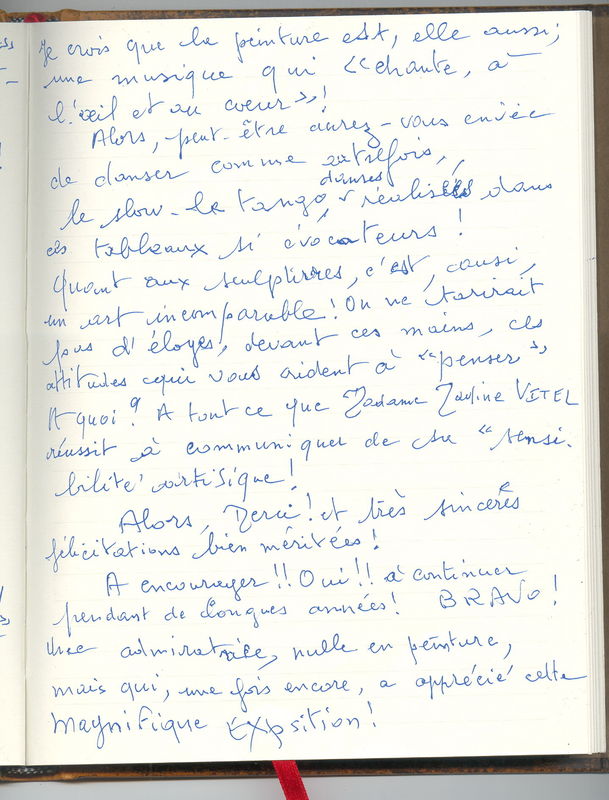 Je crois que la peinture est, elle aussi,
une musique qui "chante, à
l'œil et au cœur"!
Alors, peut-être aurez-vous envie
de danser comme autrefois,
le slow - le tango, danses réalisées dans
ces tableaux si évocateurs !
Quant aux sculptures, c'est, aussi,
un art incomparable ! On ne tarirait
pas d'éloges, devant ces mains, ces
attitudes qui vous aident à "penser"
A quoi ? A tout ce que Madame Nadine VITEL
réussit à communiquer de sa "sensi-
bilité" artisique !
Alors, Merci ! et très sincères
félicitations bien méritées !
A encourager !! Oui !! à continuer
pendant de longues années ! BRAVO !
Une admiratrice, nulle en peinture,
mais qui, une fois encore, a apprécié cette
Magnifique Expsition !